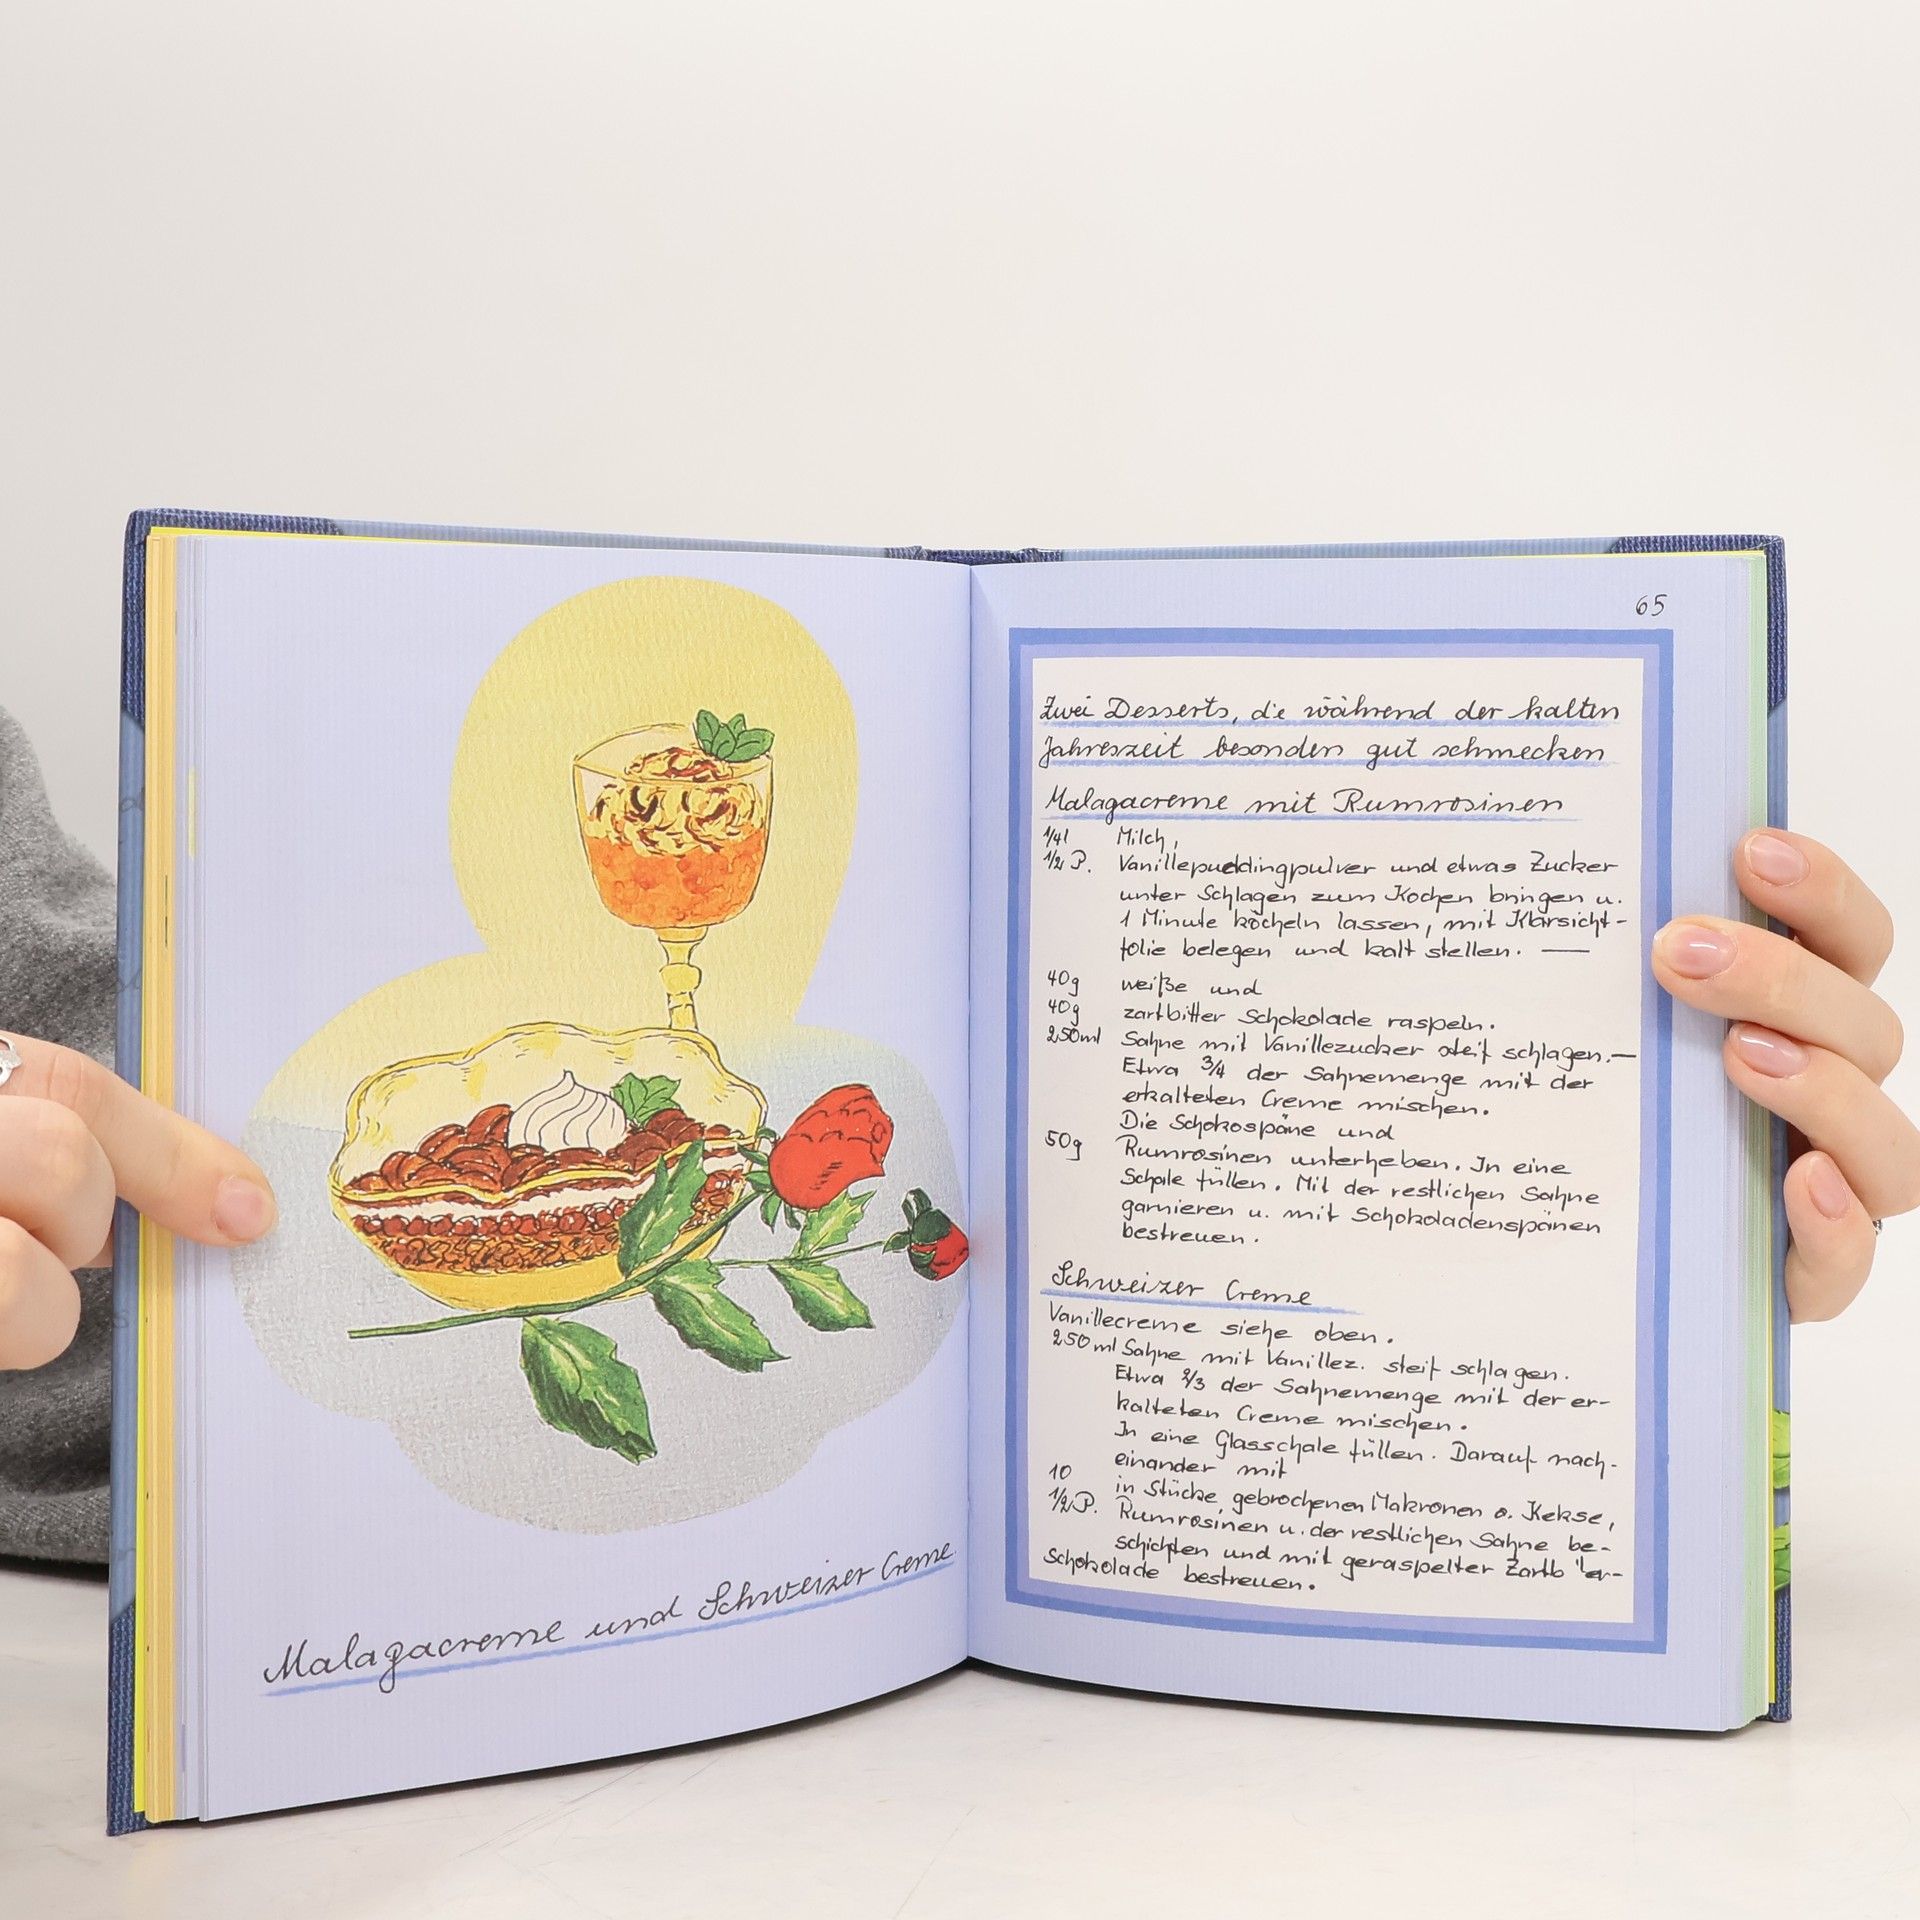 Malagacreme und Schweizer Creme
65
Zwei Desserts, die während der kalten
Jahreszeit besonders gut schmecken
Malagacreme mit Rumrosinen
1/4 l Milch,
1/2 P. Vanillepuddingpulver und etwas Zucker
unter Schlagen zum Kochen bringen u.
1 Minute köcheln lassen, mit Klarsicht-
folie belegen und kalt stellen. —
40g weiße und
40g zartbitter Schokolade raspeln.
250ml Sahne mit Vanillezucker steif schlagen.—
Etwa 3/4 der Sahnemenge mit der
erkalteten Creme mischen.
Die Schokospäne und
50g Rumrosinen unterheben. In eine
Schale füllen. Mit der restlichen Sahne
garnieren u. mit Schokoladenspänen
bestreuen.
Schweizer Creme
Vanillecreme siehe oben.
250 ml Sahne mit Vanillez. steif schlagen.
Etwa 2/3 der Sahnemenge mit der er-
kalteten Creme mischen.
In eine Glasschale füllen. Darauf nach-
einander mit
10 in Stücke gebrochenen Makronen o. Kekse,
1/2 P. Rumrosinen u. der restlichen Sahne be-
schichten und mit geraspelter
Schokolade bestreuen.